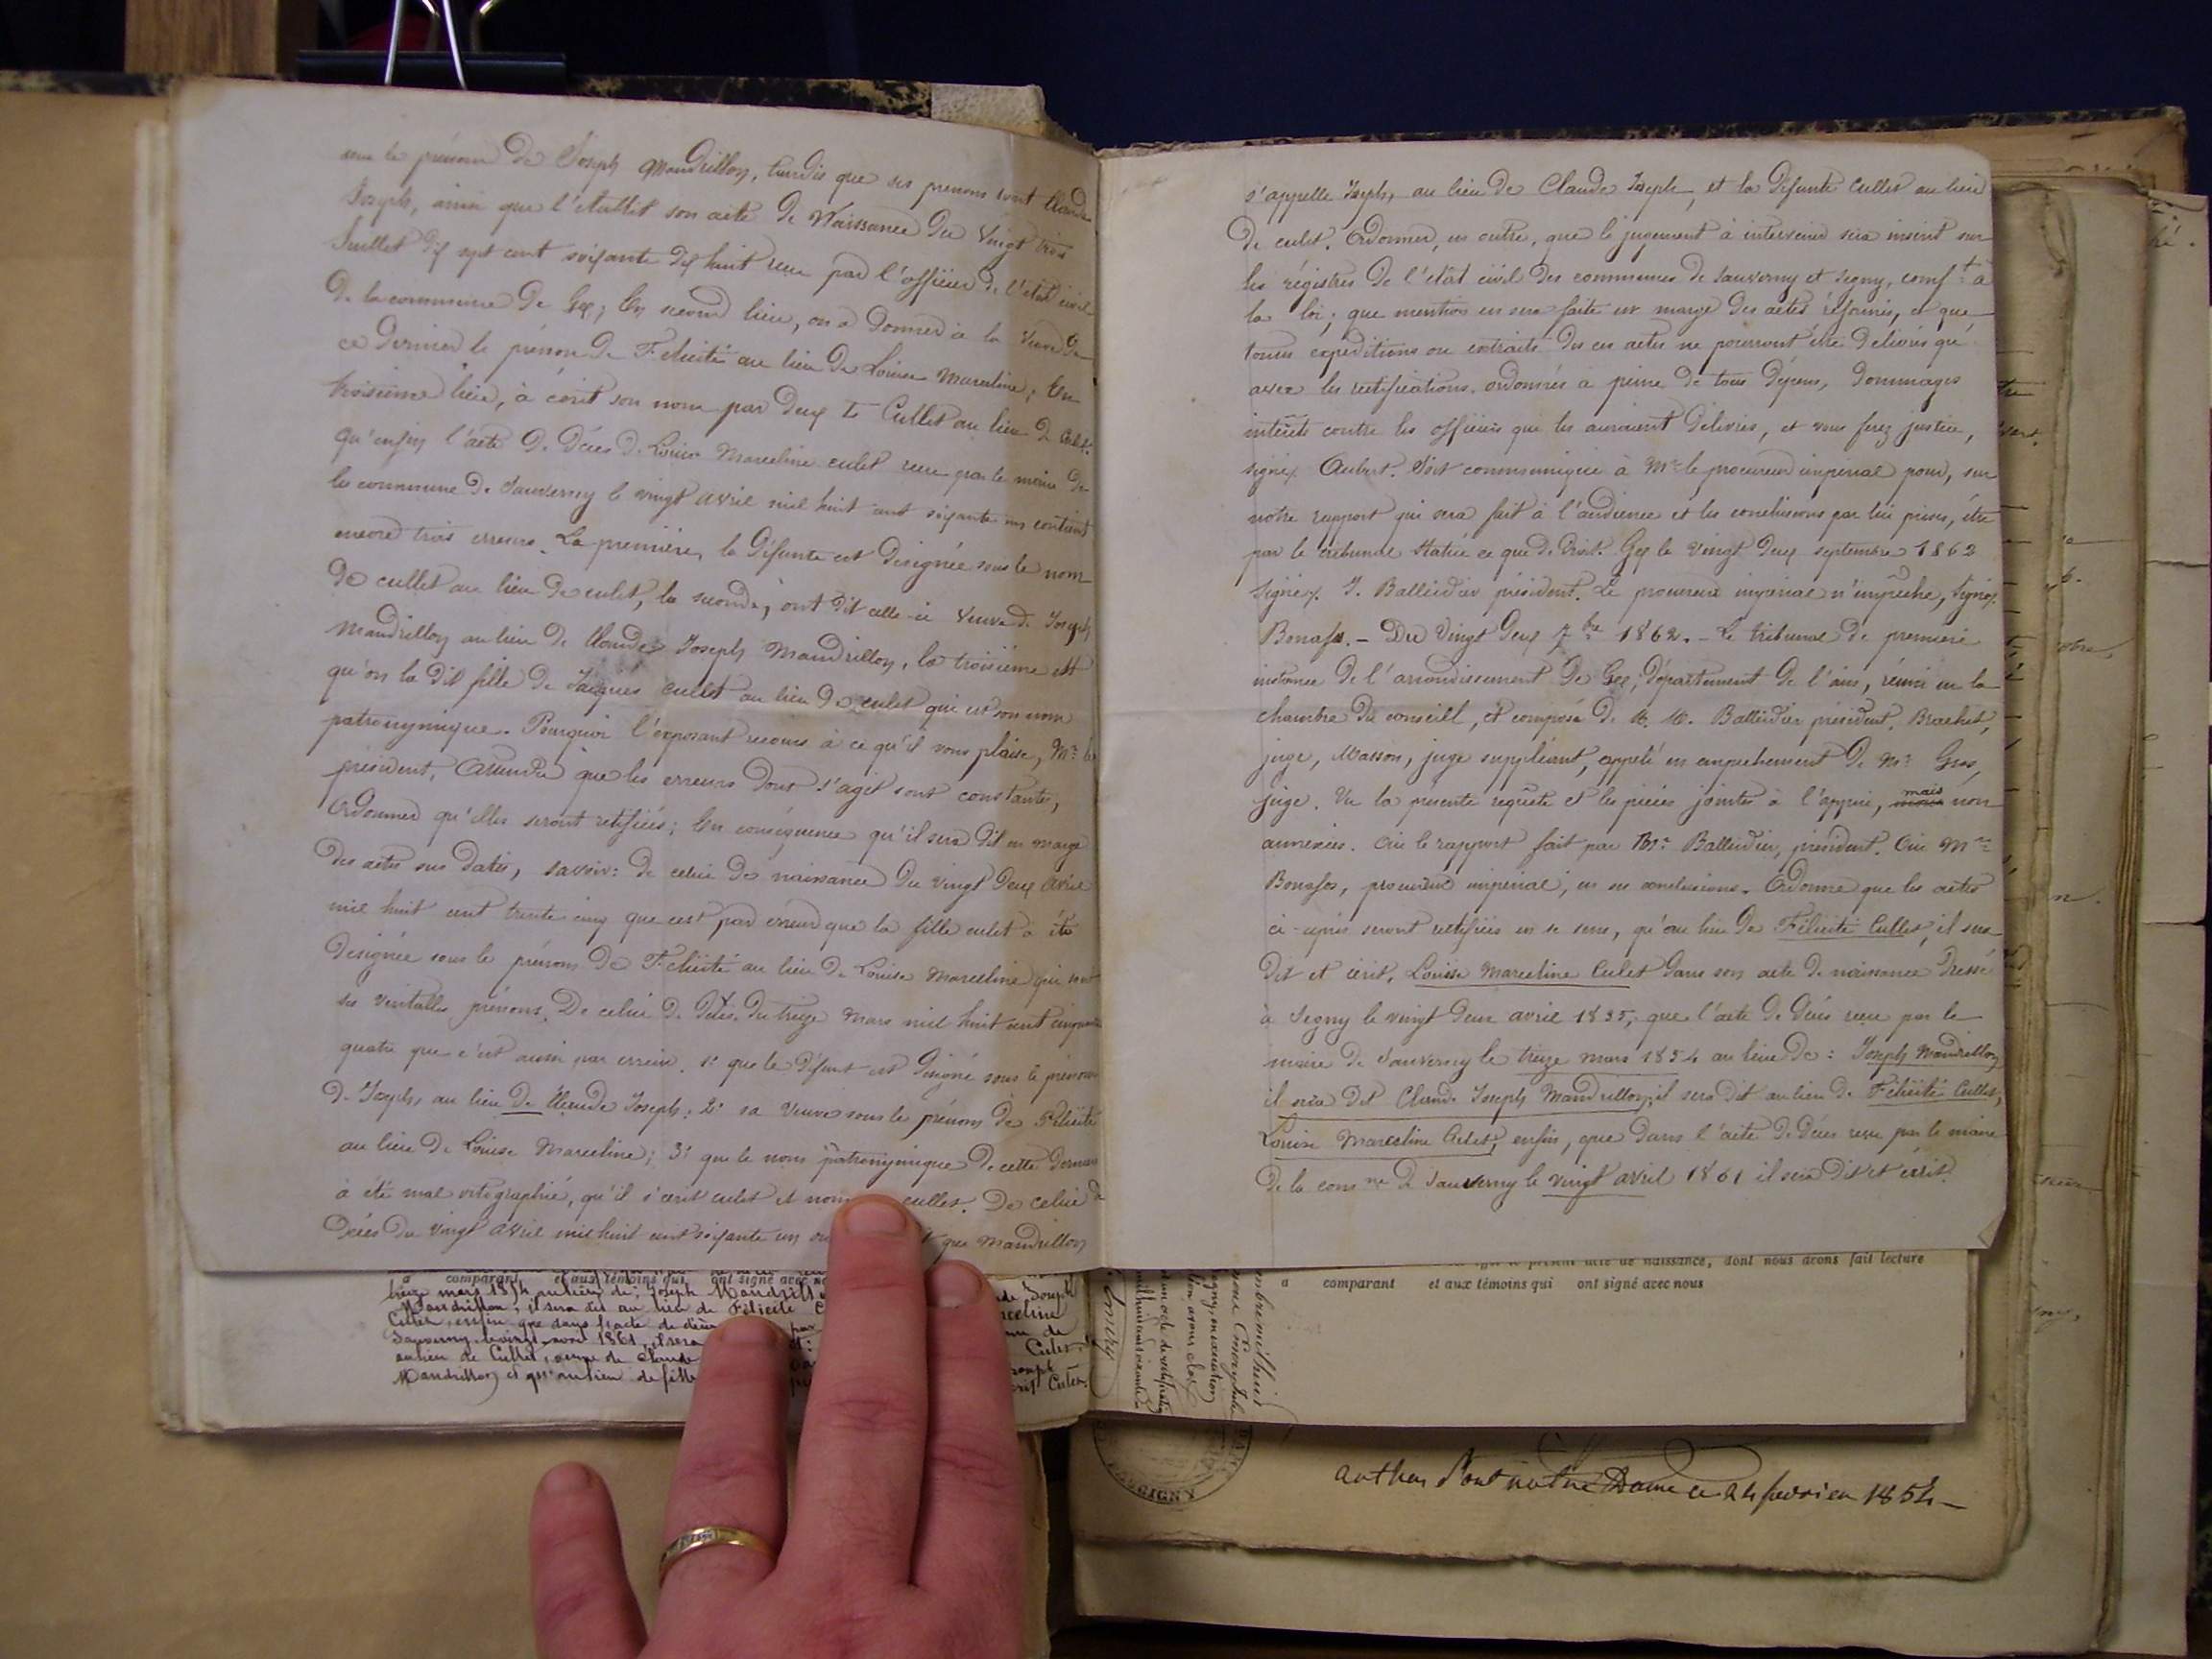 sous le prénom de Joseph Mandrillon, tandis que ses prenoms sont Claude
Joseph, ainsi que l'etablit son acte de Naissance du Vingt trois
Juillet dix sept cent soixante dix huit reçu par l'officier de l'état civil
De la commune de Gex; En second lieu, on a donné à la Veuve de
ce dernier le prénom de Félicité au lieu de Louise Marceline; En
troisième lieu, à écrit son nom par deux tt Cullet au lieu de Culet.
Qu'enfin l'acte de Décès de Louise Marceline culet reçu par le maire de
la commune de Sauverny le vingt avril mil huit cent soixante un contient
encore trois erreurs. La première, la défunte est désignée sous le nom
de cullet au lieu de culet, la seconde, ont dit celle-ci Veuve de Joseph
Mandrillon au lieu de Claude Joseph Mandrillon, la troisième est
qu'on la dit fille de Jacques cullet au lieu de culet qui est son nom
patronymique. Pourquoi l'exposant recours à ce qu'il vous plaise, Mr. le
président, Attendu que les erreurs dont s'agit sont constantes,
Ordonner qu'elles seront rectifiées; En conséquence qu'il sera dit en marge
des actes sus datés, savoir: de celui de naissance du vingt deux avril
mil huit cent trente cinq que c'est par erreur que la fille culet a été
designée sous le prénom de Félicité au lieu de Louise Marceline qui sont
ses veritables prénoms. De celui de Décès du treize Mars mil huit cent cinquante
quatre que c'est aussi par erreur. 1° que le défunt est désigné sous le prénom
de Joseph, au lieu de Claude Joseph; 2° sa Veuve sous le prénom de Félicité
au lieu de Louise Marceline; 3° que le nom patronymique de cette dernière
à été mal ortographié, qu'il s'écrit culet et non cullet. De celui de
Décès du vingt avril mil huit cent soixante un que Mandrillon
s'appelle Joseph, au lieu de Claude Joseph, et la défunte Cullet au lieu
de culet. Ordonner, en outre, que le jugement à intervenir sera inscrit sur
les régistres de l'état civil des communes de Sauverny et Segny, conft. à
la loi; que mention en sera faite en marge des actes réformés, et que
toutes expéditions ou extraits de ces actes ne pourront être délivrés qu'
avec les rectifications ordonnées à peine de tous dépens, dommages
intérêts contre les officiers qui les auraient délivrés, et vous ferez justice,
signé, Aubert. Soit communiquée à Mr. le procureur impérial pour, sur
notre rapport qui sera fait à l'audience et les conclusions par lui prises, être
par le tribunal statué ce que de droit. Gex le Vingt Deux septembre 1862
Signé, J. Balleidier président. Le procureur impérial n'empêche, Signé,
Bonafos. - Du Vingt deux 7bre 1862. - Le tribunal de première
instance de l'arrondissement de Gex, département de l'ain, réuni en la
chambre du conseill, et composé de M. M. Balleidier président, Brachet,
juge, Masson, juge suppléant, appelé en empechement de Mr. Gros,
juge. Vu la présente requête et les pièces jointes à l'appui, mais non
annexées. Oui le rapport fait par Mr. Balleidier, président. Oui Mr.
Bonafos, procureur impérial, en ses conclusions. Ordonne que les actes
ci-après seront rectifiées en se sens, qu'au lieu de Félicité Cullet, il sera
dit et écrit, Louise Marceline Culet dans son acte de naissance dressé
à Segny le vingt deux avril 1835, que l'acte de décès reçu par le
maire de Sauverny le treize mars 1854 au lieu de: Joseph Mandrillon
il sera dit Claude Joseph Mandrillon; il sera dit au lieu de Félicité Cullet,
Louise Marceline Culet, enfin, que dans l'acte de Décès reçu par le maire
de la comne de Sauverny le vingt avril 1861 il sera dit et écrit.
a comparant et aux témoins qui ont signé avec
treize mars 1854 au lieu de; Joseph Mandrill
Mandrillon; il sera dit au lieu de Félicité
Culet, enfin que dans l'acte de décès par
Sauverny le vingt avril 1861, il sera
au lieu de Cullet, veuve de Claude
Mandrillon et qu'au lieu de fille
Joseph
Culet
dont nous avons fait lecture
a comparant et aux témoins qui ont signé avec nous
autun Pont notre Dame ce 24 fevrier 1854